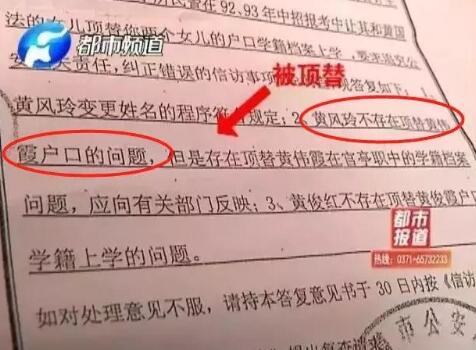 民管在92.93年中招报考中让其和黄国
法的女儿顶替你两个女儿的户口学籍档案上学，要求追究公
责任，纠正错误的信访事项 答复如下：1、
黄风玲变更姓名的程序符 规定；2、黄风玲不存在顶替黄伟
霞户口的问题，但是存在顶替黄伟霞在官亭职中的学籍档案
问题，应向有关部门反映；3、黄俊红不存在顶替黄俊霞户口
学籍上学的问题。
如对处理意见不服，请持本答复意见书于30日内按《信访
市公安
都市频道
被顶替
都市
报道
热线：0371-65732233